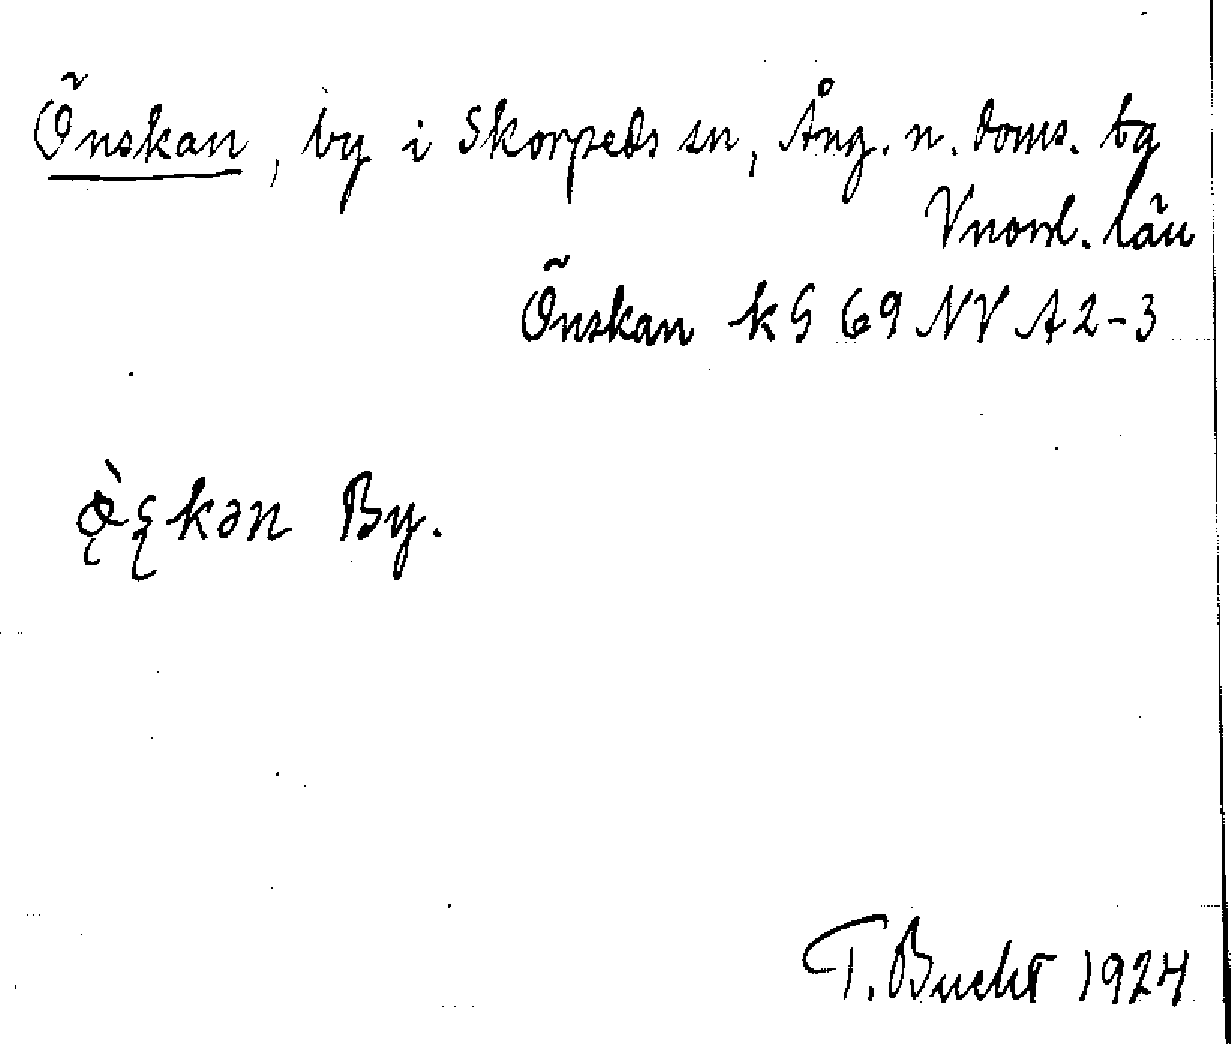 Önskan, by i Skorpeds sn, Ång. n. doms. tg
Vnorrl. län
Önskan kS 69 NV A2-3
By.
T. Bucht 1924